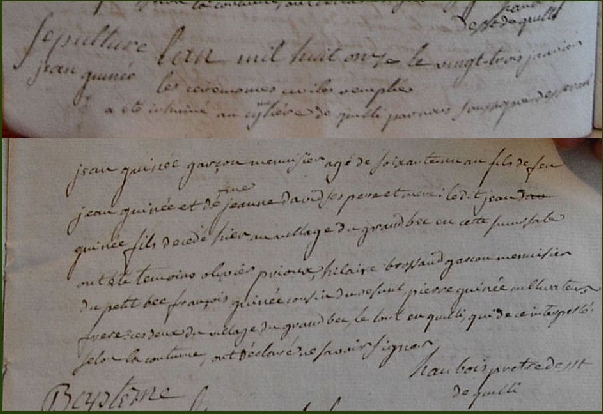 de st de quilli
Sepulture
jean guinée
Lan mil huit onze le vingt trois janvier
les ceremonies civiles remplies
a été inhumé au cytiere de quilli par nous soussigné desservant
jean guinée garçon menuisier agé de soixante un an fils de feu
jean guinée et de jeanne david ses pere et mere le dt jean
guinée fils decedé hier au village du grand bec en cette succursale
ont été temoins olivier prioux, hilaire brossaud garçon menuisier
du petit bec françois guinée cousin du defunt pierre guinée cultivateur
frere ces deux du village du grand bec le tout en quilli, qui de ce interpellés
selon la coutume, ont déclaré ne savoir signer
haubois pretre desst
de quilli
Baptême